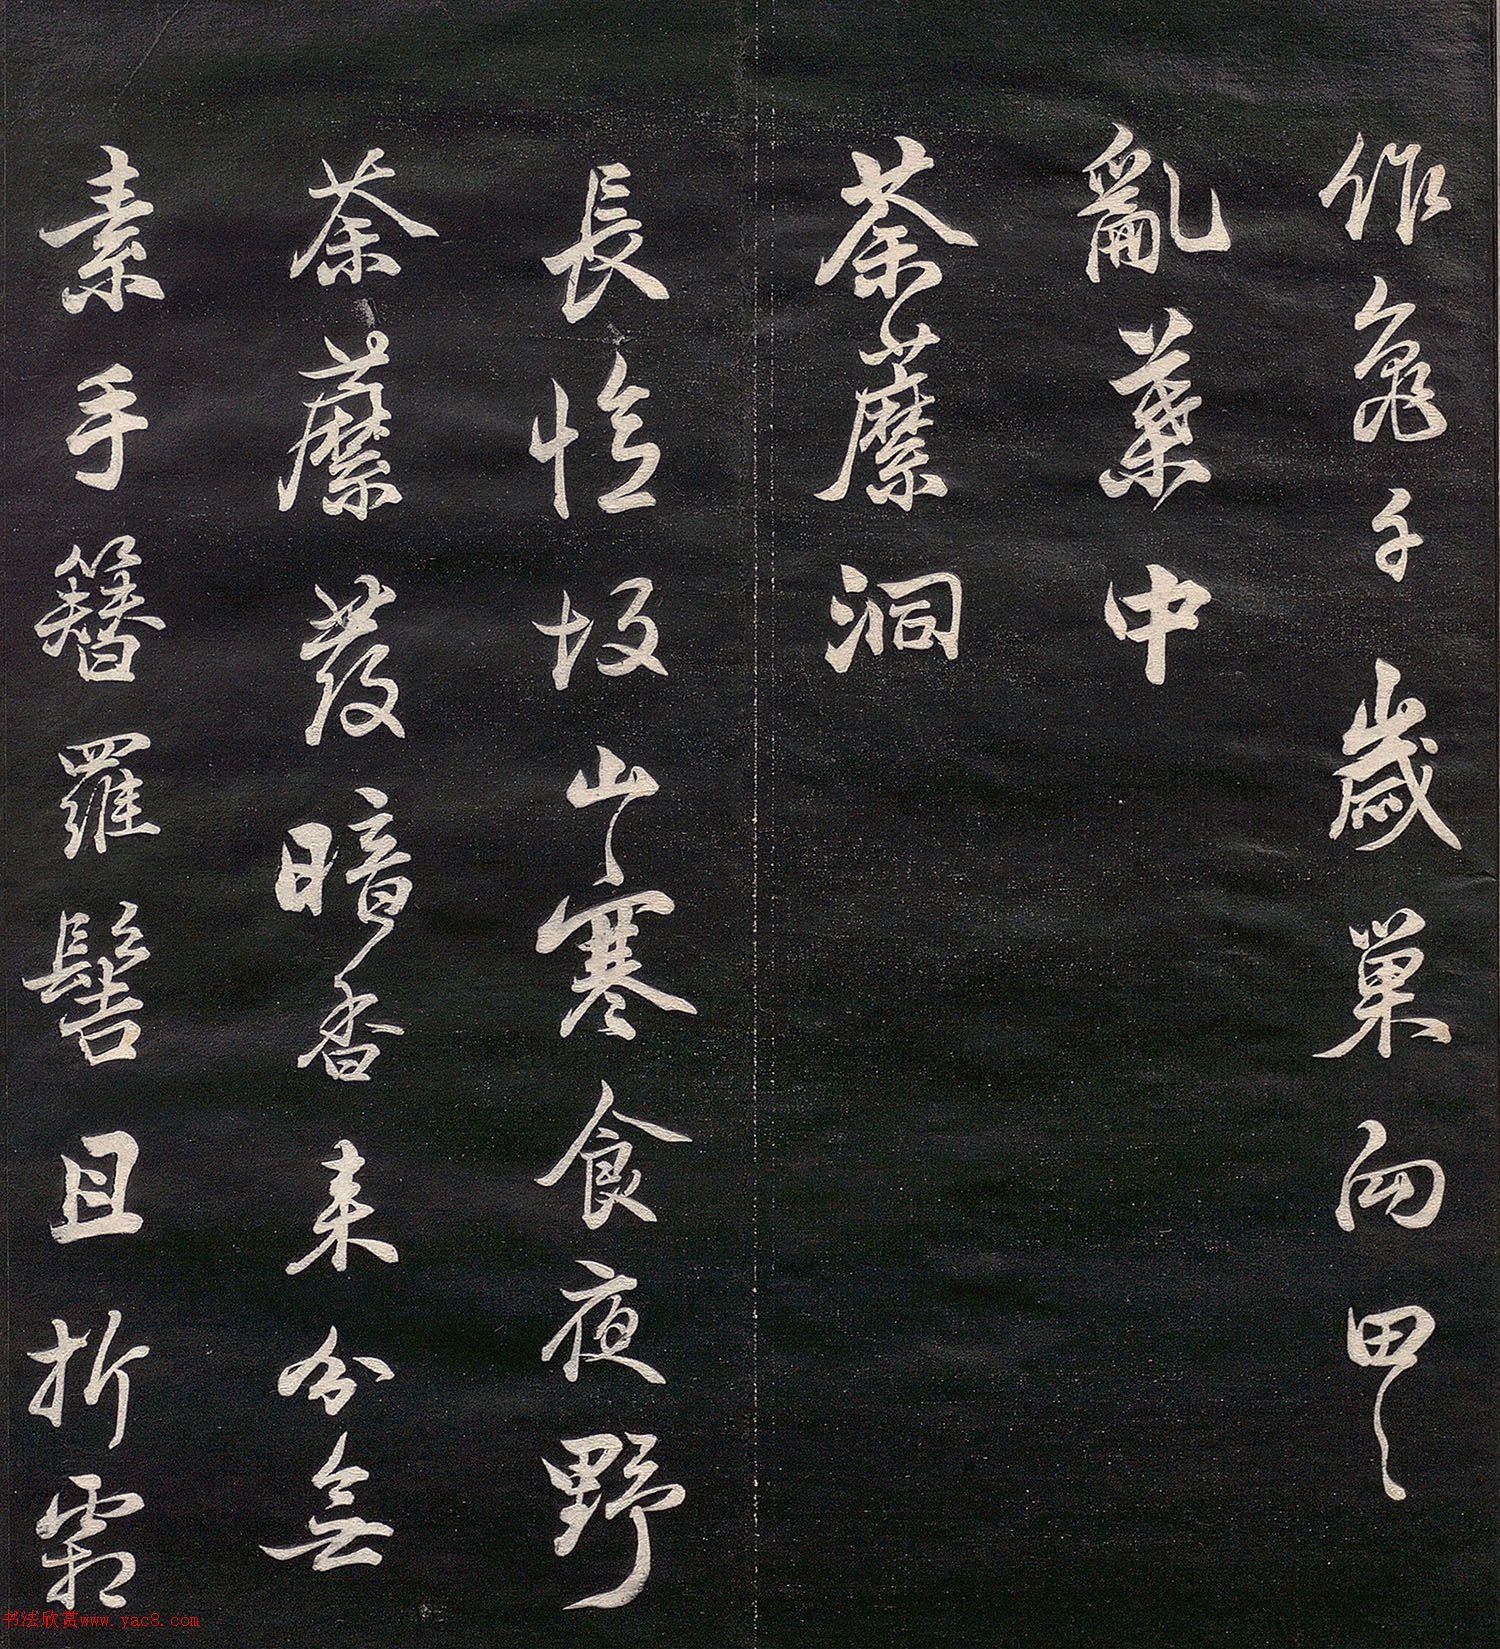 作龜千歲巢向田〻
亂葉中
荼蘼洞
長憶故山寒食夜野
荼蘼發暗香来分無
素手簪羅髻且折霜
书法欣赏www.yac8.com